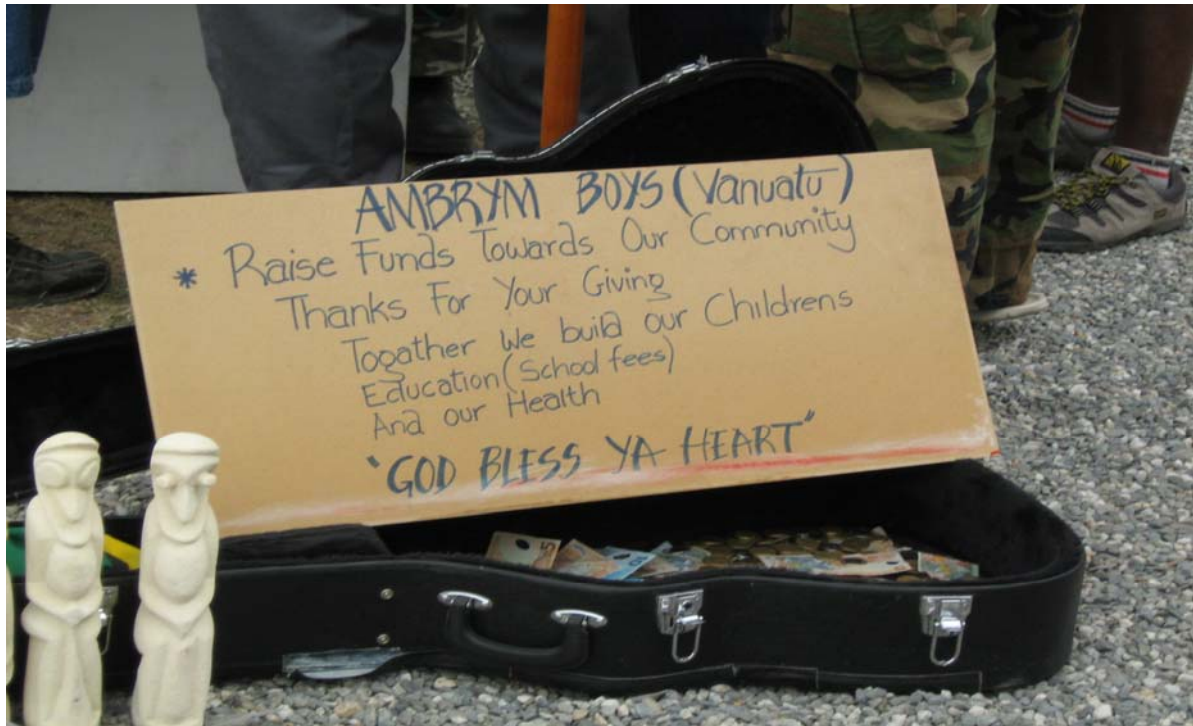 AMBRYM BOYS (Vanuatu)
* Raise Funds Towards Our Community
Thanks For Your Giving
Togather We build our Childrens
Education (School fees)
And our Health
"GOD BLESS YA HEART"
5